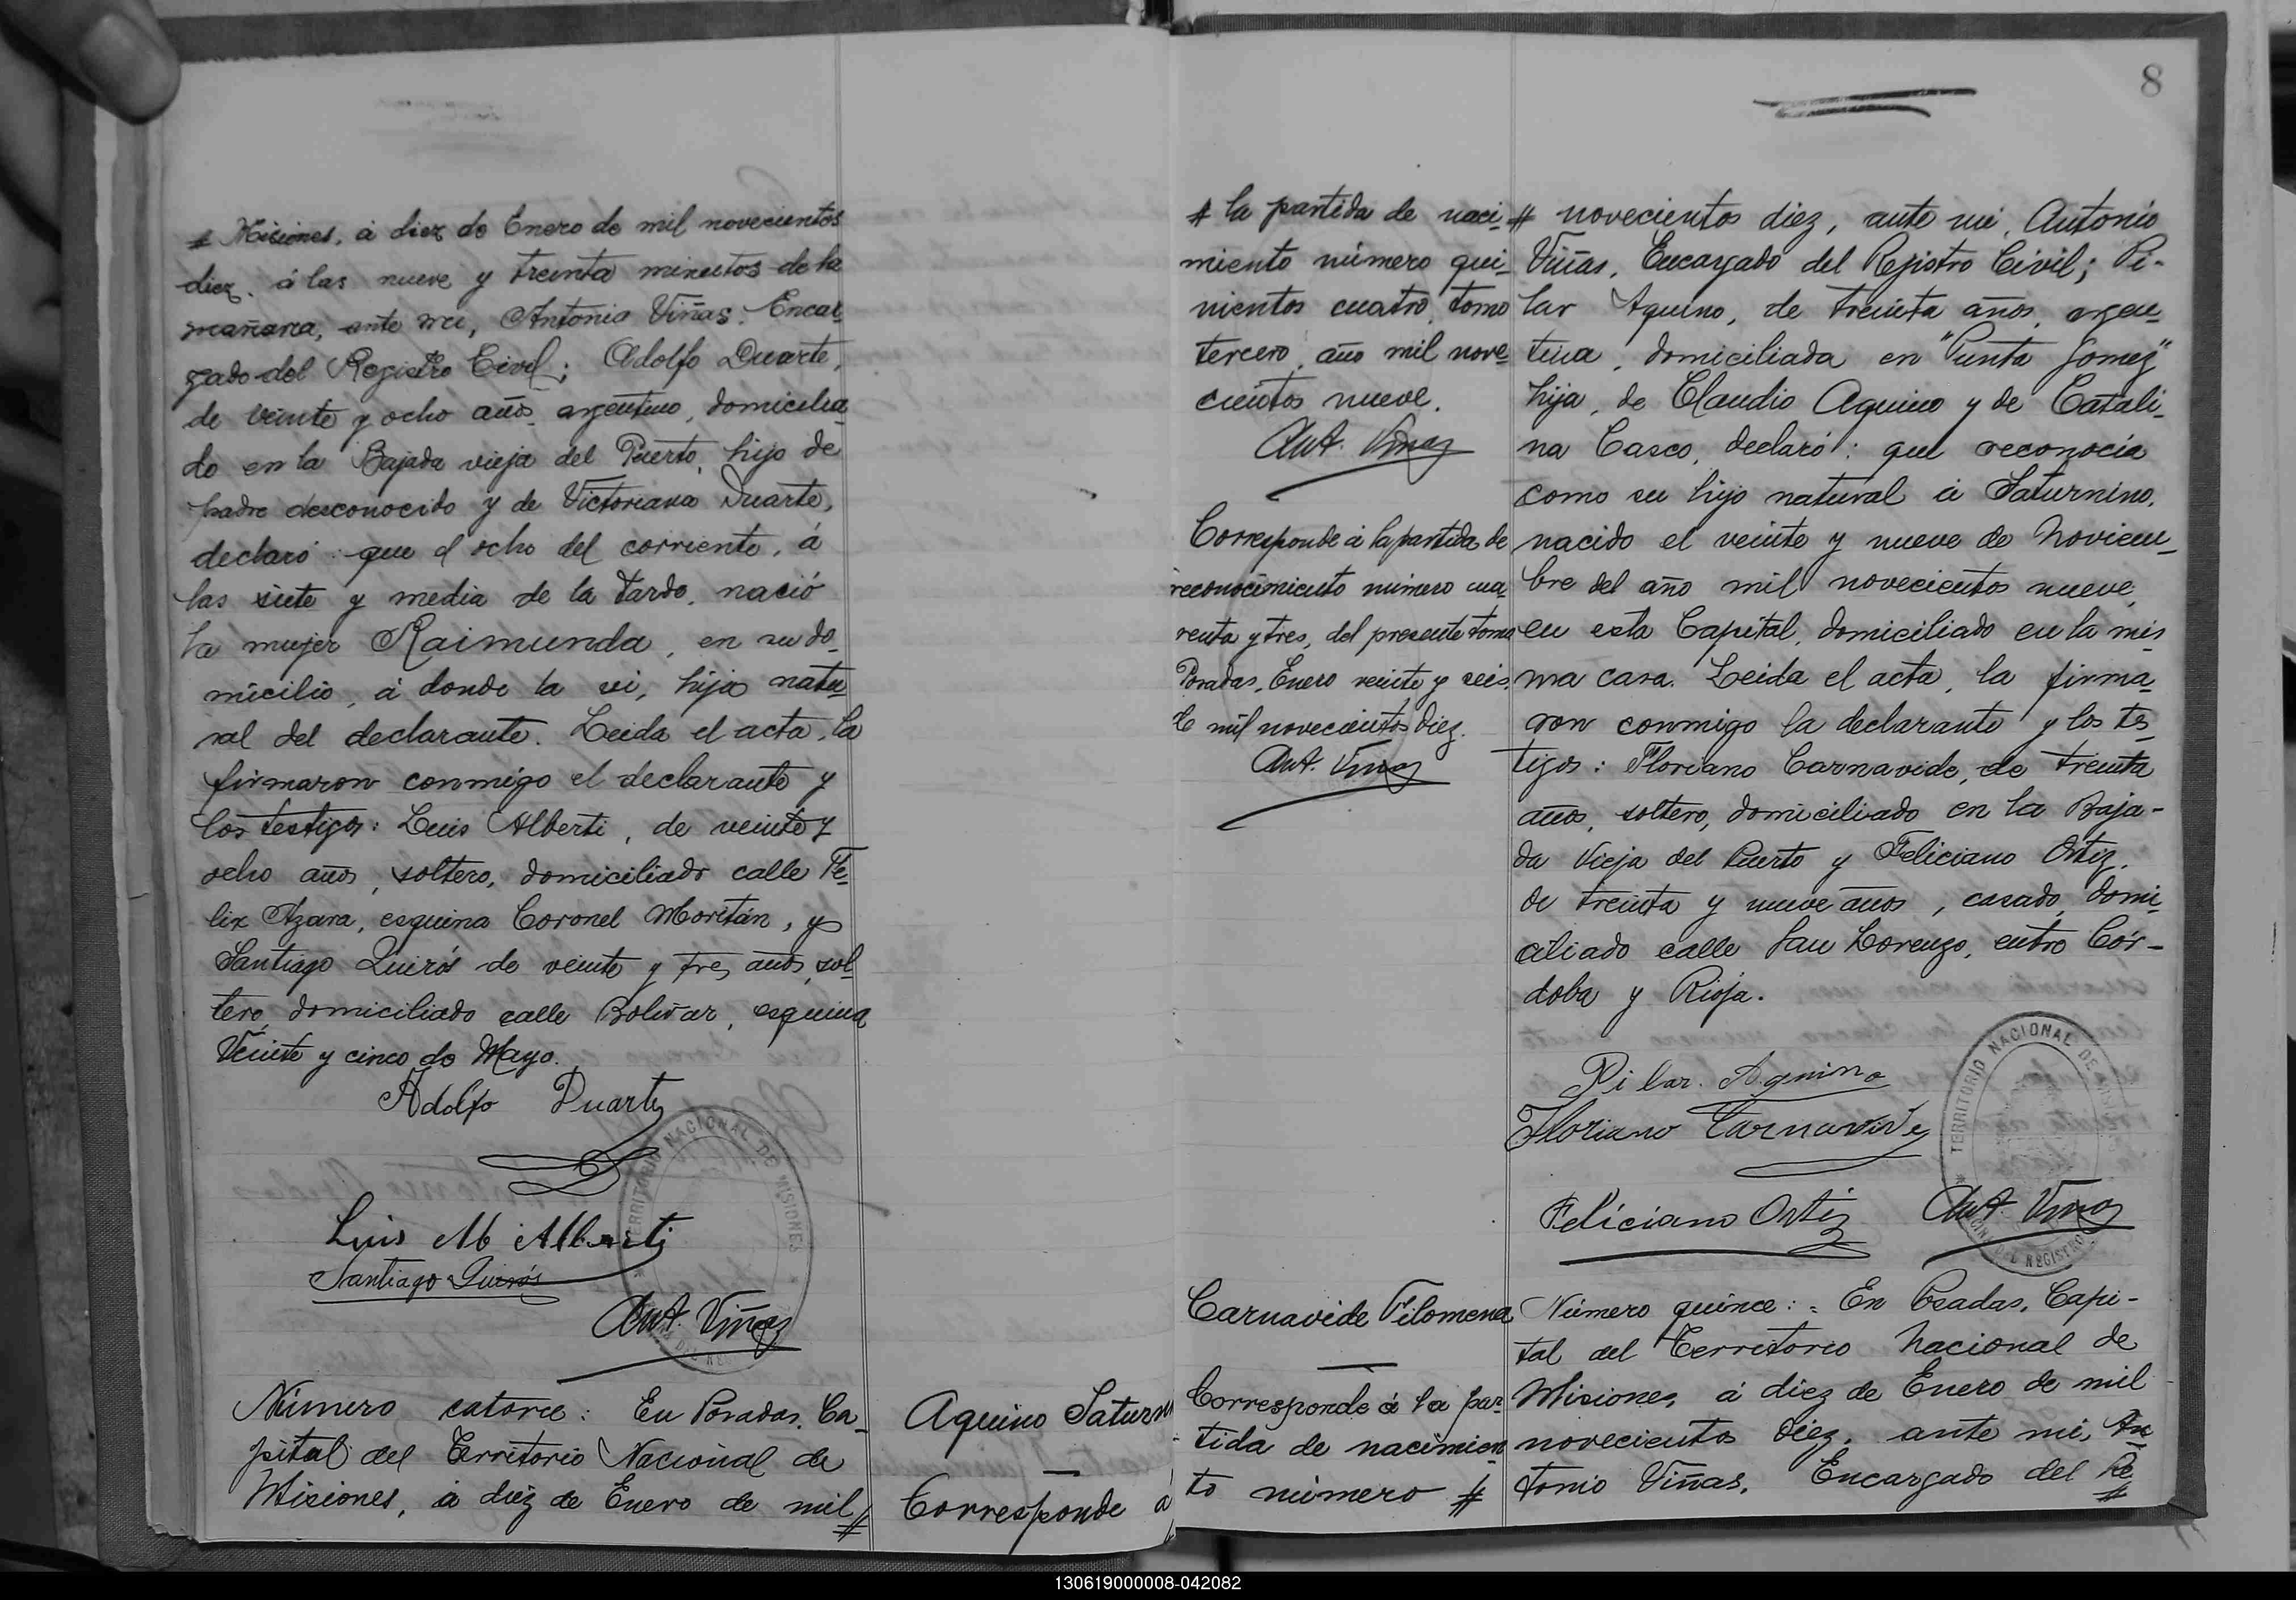 # Misiones, á diez de Enero de mil novecientos
diez, á las nueve y treinta minutos de la
mañana, ante mi, Antonio Viñas, Encar-
gado del Registro Civil; Adolfo Duarte,
de veinte y ocho años, argentino, domicilia-
do en la Bajada vieja del Puerto, hijo de
padre desconocido y de Victoriana Duarte,
declaró: que el ocho del corriente, á
las siete y media de la tarde, nació
la mujer Raimunda, en su do-
micilio, á donde la vi, hija natu-
ral del declarante. Leida el acta, la
firmaron conmigo el declarante y
los testigos: Luis Alberti, de veinte y
ocho años, soltero, domiciliado calle Fe-
lix Azara, esquina Coronel Moritán, y
Santiago Quirós de veinte y tres años, sol-
tero, domiciliado calle Bolivar, esquina
Veinte y cinco de Mayo.
Adolfo Duarte
Luis M Alberti
Santiago Quirós
Ant. Viñas
TERRITORIO NACIONAL DE MISIONES
Número catorce: En Posadas, Ca-
pital del Territorio Nacional de
Misiones, á diez de Enero de mil #
Aquino Saturn
Corresponde a
8
# la partida de naci-
miento número qui-
nientos cuatro, tomo
tercero, año mil nove-
cientos nueve.
Ant. Viñas
Corresponde á la partida de
reconocimiento número cua-
renta y tres, del presente tomo
Posadas, Enero veinte y seis
de mil novecientos diez.
Ant. Viñas
Carnavide Filomena
Corresponde á la par-
tida de nacimien-
to número #
# novecientos diez, ante mi, Antonio
Viñas, Encargado del Registro Civil; Pi-
lar Aquino, de treinta años, argen-
tina, domiciliada en "Punta Gomez"
hija, de Claudio Aquino y de Catali-
na Casco, declaró: que reconocía
como su hijo natural á Saturnino,
nacido el veinte y nueve de Noviem-
bre del año mil novecientos nueve,
en esta Capital, domiciliado en la mis-
ma casa. Leida el acta, la firma-
ron conmigo la declarante y los tes-
tigos: Floriano Carnavide, de treinta
años, soltero, domiciliado en la Baja-
da Vieja del Puerto y Feliciano Ortiz,
de treinta y nueve años, casado, domi-
ciliado calle San Lorenzo, entre Cór-
doba y Rioja.
Pilar. Aquino
Floriano Carnavide
Feliciano Ortiz
Ant. Viñas
TERRITORIO NACIONAL DE MISIONES
Número quince: = En Posadas, Capi-
tal del Territorio Nacional de
Misiones, á diez de Enero de mil
novecientos diez, ante mi, An-
tonio Viñas, Encargado del Re-
#
130619000008-042082